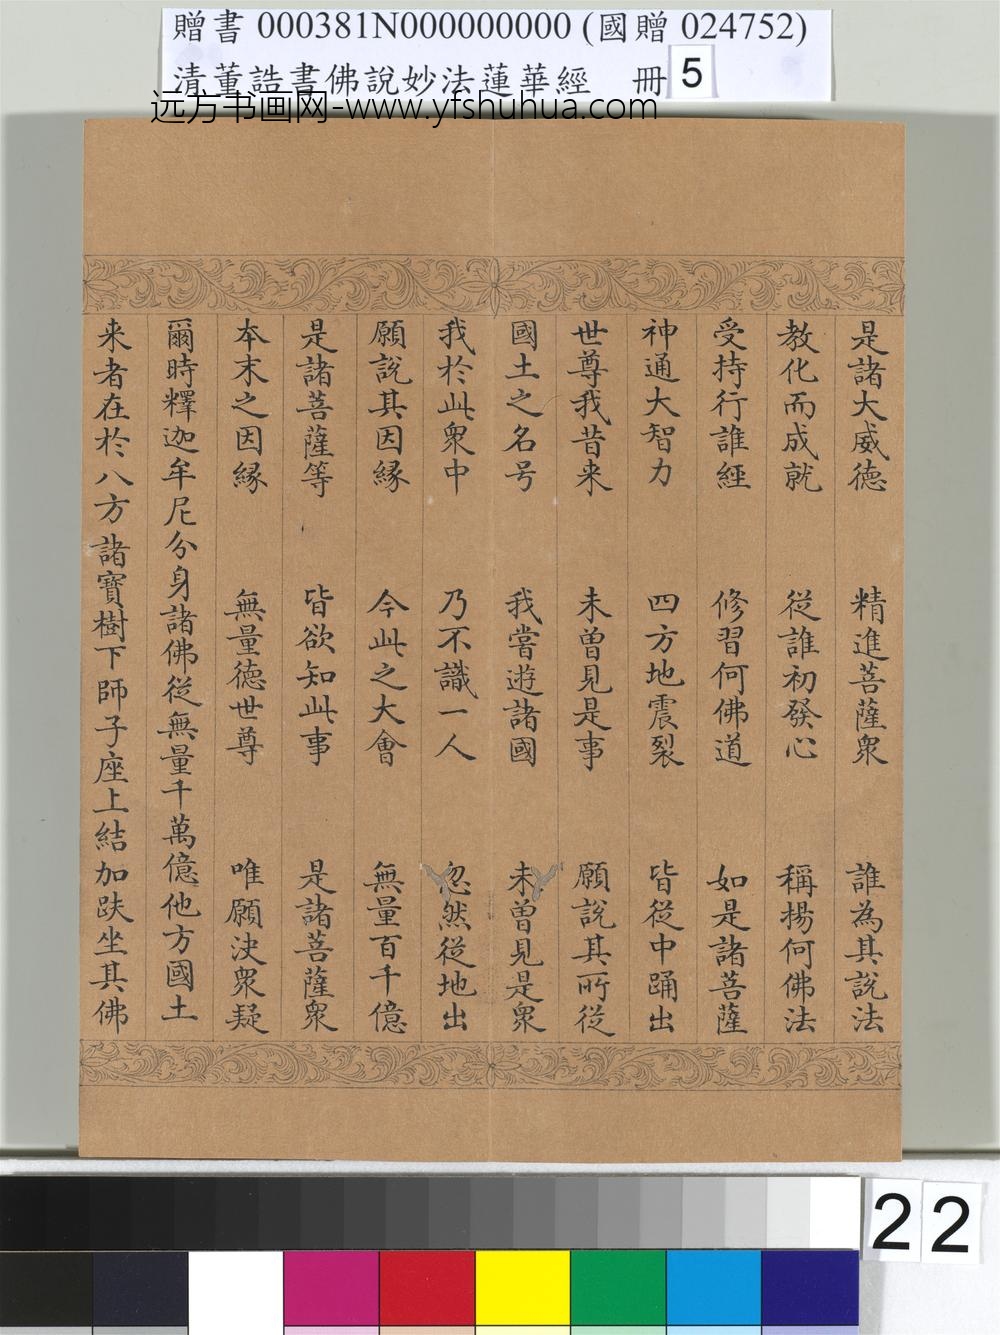 贈書 000381N000000000 (國贈 024752)
清董誥書佛說妙法蓮華經 冊 5
远方书画网-www.yfshuhua.com
是諸大威德 精進菩薩衆 誰為其說法
教化而成就 從誰初發心 稱揚何佛法
受持行誰經 修習何佛道 如是諸菩薩
神通大智力 四方地震裂 皆從中踊出
世尊我昔来 未曽見是事 願說其所從
國土之名号 我嘗遊諸國 未曽見是衆
我於此衆中 乃不識一人 忽然從地出
願說其因緣 今此之大會 無量百千億
是諸菩薩等 皆欲知此事 是諸菩薩衆
本末之因緣 無量德世尊 唯願決衆疑
爾時釋迦牟尼分身諸佛從無量千萬億他方國土
来者在於八方諸寶樹下師子座上結加趺坐其佛
22